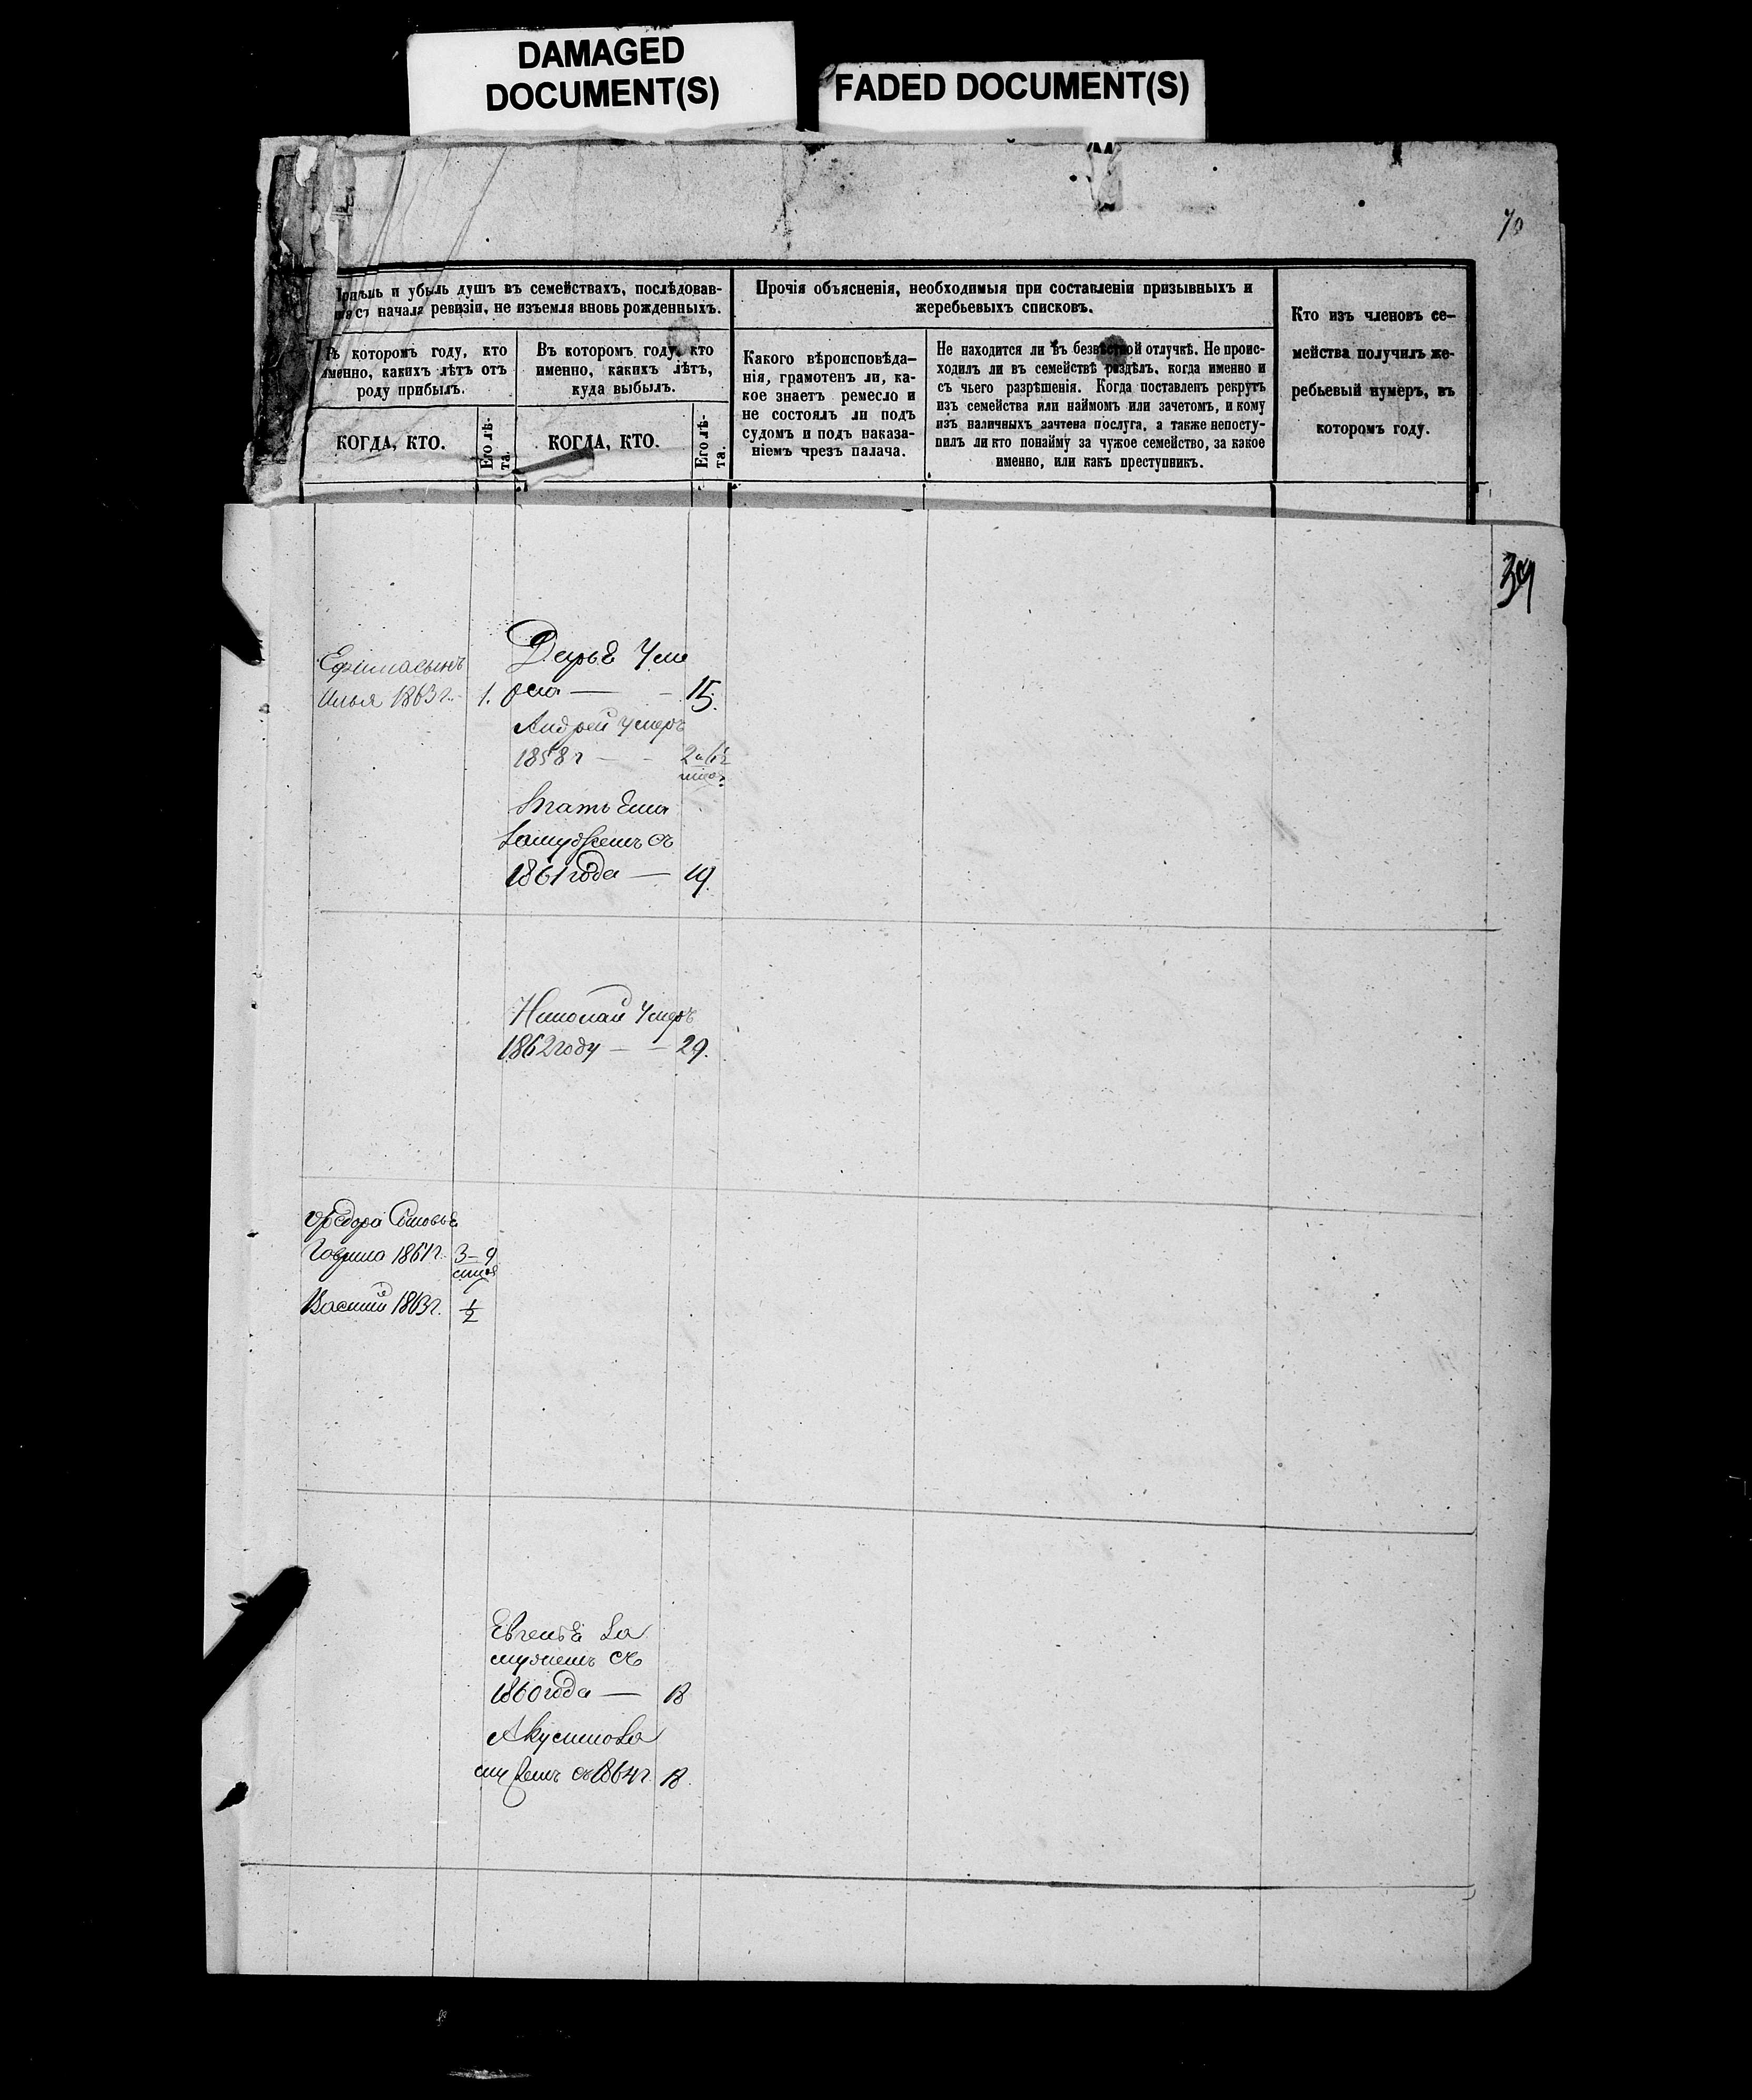 DAMAGED
DOCUMENT(S)
FADED DOCUMENT(S)
70
и убыль душъ въ семействахъ, послѣдовав-
съ начала ревизіи, не изъемля вновь рожденныхъ.
Въ которомъ году, кто
именно, какихъ лѣтъ отъ
роду прибылъ.
КОГДА, КТО.
Его лѣ-
та.
Въ которомъ году, кто
именно, какихъ лѣтъ,
куда выбылъ.
КОГДА, КТО.
Его лѣ-
та.
Прочія объясненія, необходимыя при составленіи призывныхъ и
жеребьевыхъ списковъ.
Какого вѣроисповѣда-
нія, грамотенъ ли, ка-
кое знаетъ ремесло и
не состоялъ ли подъ
судомъ и подъ наказа-
ніемъ чрезъ палача.
Не находится ли въ безвѣстной отлучкѣ. Не проис-
ходилъ ли въ семействѣ раздѣлъ, когда именно и
съ чьего разрѣшенія. Когда поставленъ рекрутъ
изъ семейства или наймомъ или зачетомъ, и кому
изъ наличныхъ зачтена послуга, а также непосту-
пилъ ли кто понайму за чужое семейство, за какое
именно, или какъ преступникъ.
Кто изъ членовъ се-
мейства получилъ же-
ребьевый нумеръ, въ
которомъ году.
39
Ефима сынъ
Илья 1863 г. 1.
Дарья Уме
рла — 15.
Андрей умеръ
1858 г — 2
замужемъ съ
1861 года — 19.
Николай Умеръ
1862 году — 29.
Федора Сыновья
Гаврила 1861 г. 3 – 9
Василий 1863 г. ½
Евгенья За
мужемъ съ
1860 года — 18
Акулина За
мужемъ съ 1864 г. 18.